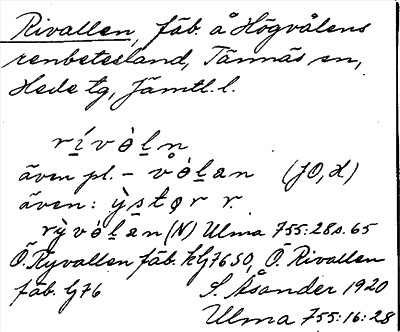 Rivallen, fäb. å Högvålens
renbetesland, Tännäs sn,
Hede tg, Jämtl. l.
rívòḷn
även pl. - vo̊̀ḷan (JO, X)
även: ỳstǫr r.
rỳvòḷan (N) Ulma 755:28 s. 65
Ö. Ryvallen fäb. kG7650, Ö. Rivallen
fäb. G76 S. Åsander 1920
Ulma 755:16:28